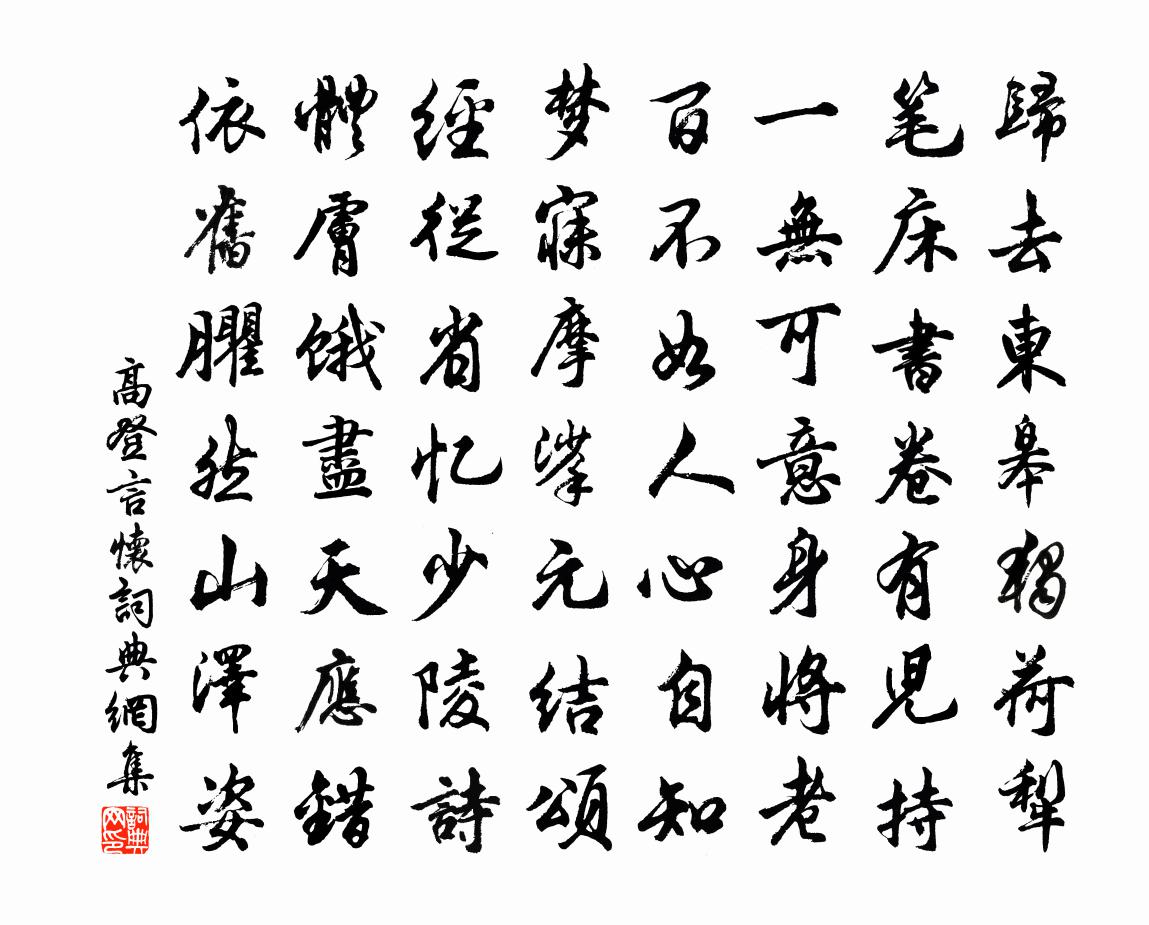 歸去東皋獨荷犁
笔床書卷有児持
一無可意身將老
百不如人心自知
梦寐摩挲元结頌
經従省忆少陵詩
體膚餓盡天應錯
依舊臞然山澤姿
高登言懷詞典網集
詞典网印